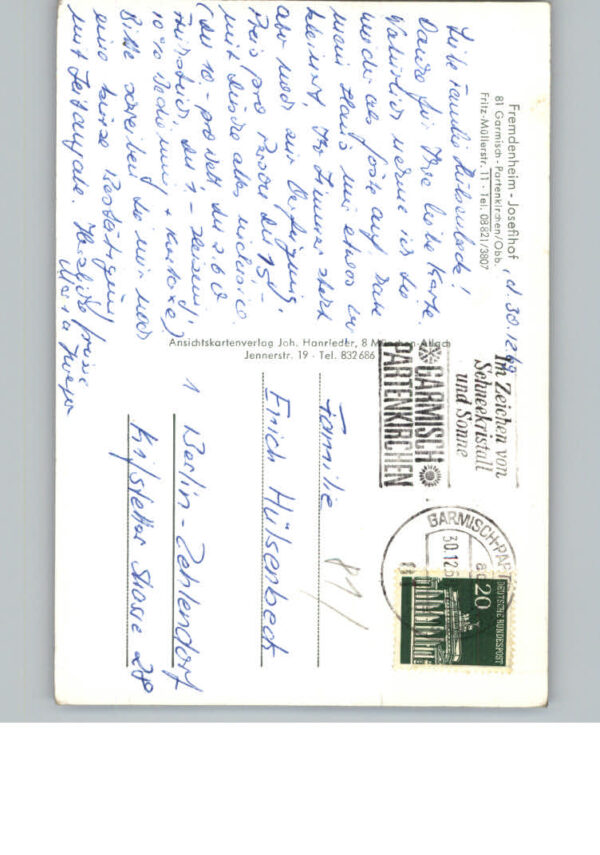 Fremdenheim - Josefihof
81 Garmisch - Partenkirchen/Obb.
Fritz-Müllerstr. 11 - Tel. 08821/3807
, d. 30.12.69
Liebe Familie Hülsenbeck!
Danke für Ihre liebe Karte.
Natürlich nehme ich Sie
wieder als Gäste auf. Habe
mein Haus nur etwas
Ihr Zimmer steht
aber noch zur Verfügung,
Preis pro Person DM 15,-
mit Dusche alles inclusive.
(DM 10.- pro Bett, DM 2.60
Frühstück, DM 1,- Heizung,
10% Bedienung + Kurtaxe)
Bitte schreiben Sie mir noch
eine kurze Bestätigung
mit Zeitangabe. Herzliche Grüße
Maria
Ansichtskartenverlag Joh. Hanrieder, 8 München-Allach
Jennerstr. 19 - Tel. 832686
Im Zeichen von
Schneekristall
und Sonne
GARMISCH
PARTENKIRCHEN
GARMISCH-PART
30.12.6
DEUTSCHE BUNDESPOST
20
Familie
81/
Erich Hülsenbeck
1 Berlin-Zehlendorf
Strasse 28